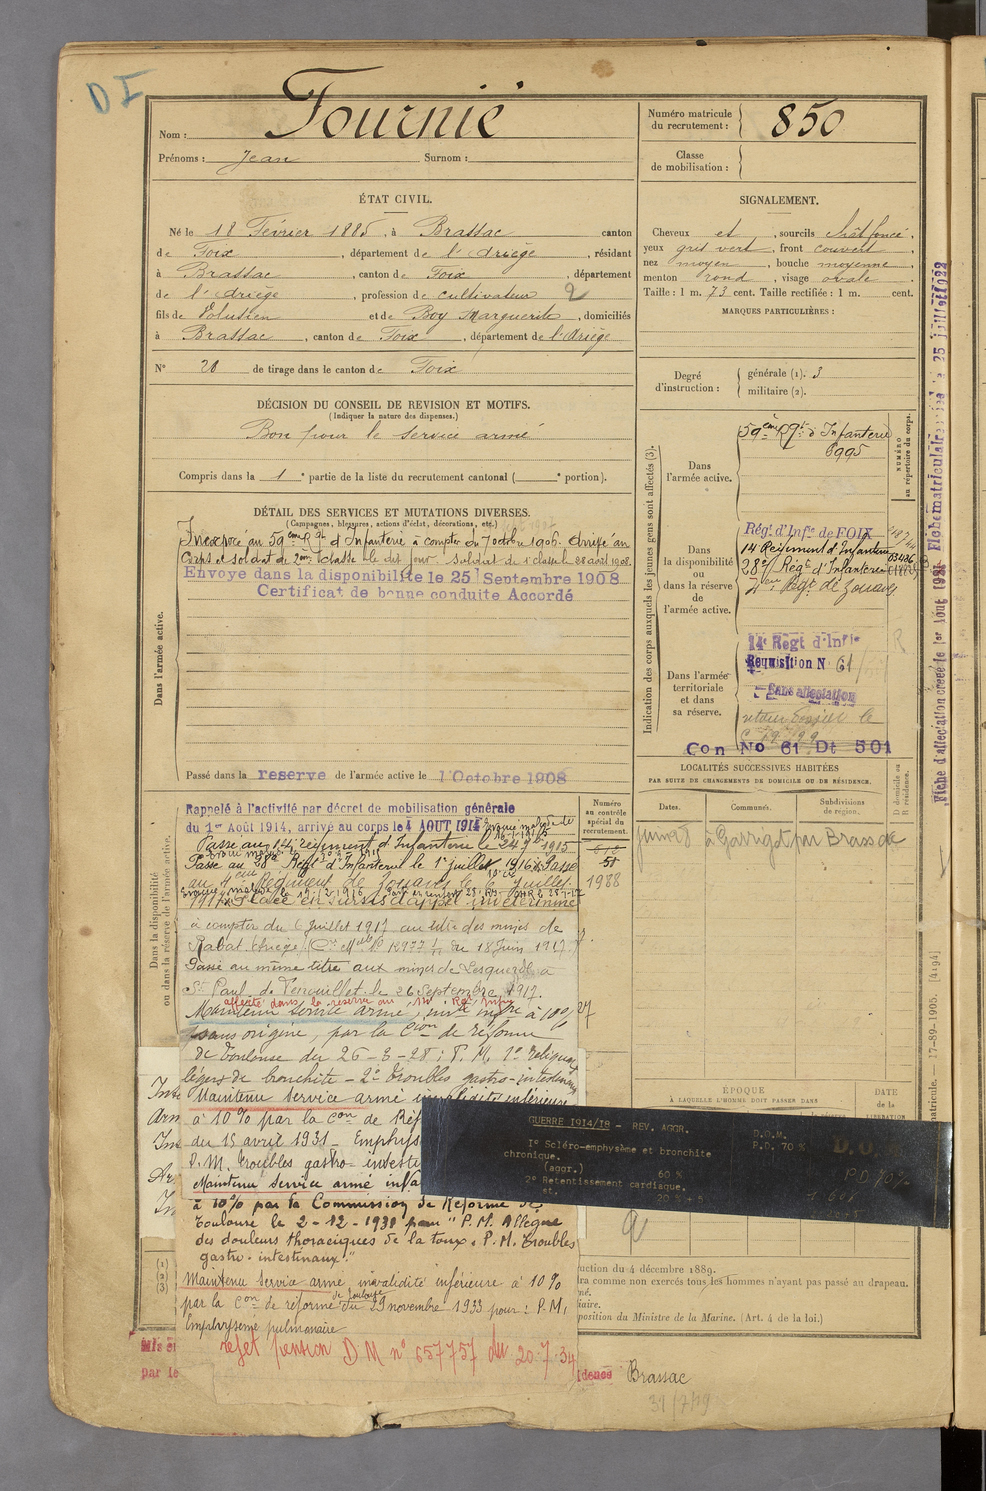 DI
Nom : Fournié
Prénoms : Jean Surnom :
Numéro matricule du recrutement : 850
Classe de mobilisation :
ÉTAT CIVIL.
Né le 18 Février 1885, à Brassac canton
de Foix, département de l'Ariège, résidant
à Brassac, canton de Foix, département
de l'Ariège, profession de cultivateur 2
fils de Volusien et de Boy Marguerite, domiciliés
à Brassac, canton de Foix, département de l'Ariège
N° 20 de tirage dans le canton de Foix
SIGNALEMENT.
Cheveux et, sourcils chât foncé,
yeux gris vert, front couvert
nez moyen, bouche moyenne,
menton rond, visage ovale.
Taille : 1 m. 73 cent. Taille rectifiée : 1 m. cent.
MARQUES PARTICULIÈRES :
Degré d'instruction : générale (1). 3
militaire (2).
DÉCISION DU CONSEIL DE REVISION ET MOTIFS.
(Indiquer la nature des dispenses.)
Bon pour le service armé
Compris dans la 1e partie de la liste du recrutement cantonal ( e portion).
DÉTAIL DES SERVICES ET MUTATIONS DIVERSES.
(Campagnes, blessures, actions d'éclat, décorations, etc.)
Incorporé au 59eme Rgt d'Infanterie à compter du 7 octobre 1906. Arrivé au
Corps et soldat de 2eme classe le dit jour. Soldat de 1e classe le 28 avril 1908.
Envoyé dans la disponibilité le 25 Septembre 1908
Certificat de bonne conduite Accordé
Dans l'armée active.
Passé dans la reserve de l'armée active le 1 Octobre 1908
Indication des corps auxquels les jeunes gens sont affectés (3).
Dans l'armée active.
59eme Rgt d'Infanterie
6995
NUMÉRO au répertoire du corps.
Dans la disponibilité ou dans la réserve de l'armée active.
Régt d'Infie de FOIX
14 Régiment d'Infanterie
28e Régt d'Infanterie
Régt de Zouaves
Dans l'armée territoriale et dans sa réserve.
14e Regt d'Infie
Requisition N° 61
Sans affectation
Con No 61 Dt 501
LOCALITÉS SUCCESSIVES HABITÉES
PAR SUITE DE CHANGEMENTS DE DOMICILE OU DE RÉSIDENCE.
Dates. Communes. Subdivisions de région. D domicile ou R résidence.
à Garrigot par Brassac
Dans la disponibilité ou dans la réserve de l'armée active.
Numéro au contrôle spécial du recrutement.
51
1988
Rappelé à l'activité par décret de mobilisation générale
du 1er Août 1914, arrivé au corps le 4 AOUT 1914
Passé au 14e régiment d'Infanterie le 1915
Passé au Régt d'Infanterie le 1er juillet 1916. Passé
au 4eme Régiment de Zouaves le juillet
1917. Placé en sursis d'appel indéterminé
à compter du 6 Juillet 1917 au titre des mines de
Rabat (Ariège) du 18 Juin 1917.
Passé au même titre aux mines de Lesquerde à
St Paul de Fenouillet le 26 Septembre 1917.
affecté dans la reserve au 14e Rgt Infie
Maintenu service armé, invté infre à 10%
sans origine, par la Cion de réforme
de Toulouse du 26-3-28 : P.M. 1° reliquat
léger de bronchite - 2° Troubles gastro-intestinaux
Maintenu Service armé invalidité inférieure
à 10% par la Con de Réf
du 15 avril 1931 - Emphys
P.M. Troubles gastro-intesti
Maintenu Service armé inf
à 10% par la Commission de Réforme de
Toulouse le 2-12-1931 pour "P.M. Allègue
des douleurs thoraciques de la toux. P.M. Troubles
gastro-intestinaux".
Maintenu Service armé invalidité inférieure à 10%
par la Con de réforme de Toulouse du 29 novembre 1933 pour : P.M.
Emphysème pulmonaire
rejet pension D M n° 657757 du 20.7.34
ÉPOQUE
À LAQUELLE L'HOMME DOIT PASSER DANS
DATE de la LIBÉRATION
GUERRE 1914/18 - REV. AGGR.
1° Scléro-emphysème et bronchite
chronique.
(aggr.) 60 %
2° Retentissement cardiaque.
st. 20 % + 5
D.O.M.
P.D. 70 %
P.D. 70%
uction du 4 décembre 1889.
ra comme non exercés tous les hommes n'ayant pas passé au drapeau.
né.
iaire.
position du Ministre de la Marine. (Art. 4 de la loi.)
(1)
(2)
(3)
par le
idence Brassac
31/7/19
Fiche d'affectation créée le 1er Août 1921 Fiche matriculaire le 25 Juillet 1922
matricule. — 17-89-1905. [4194]